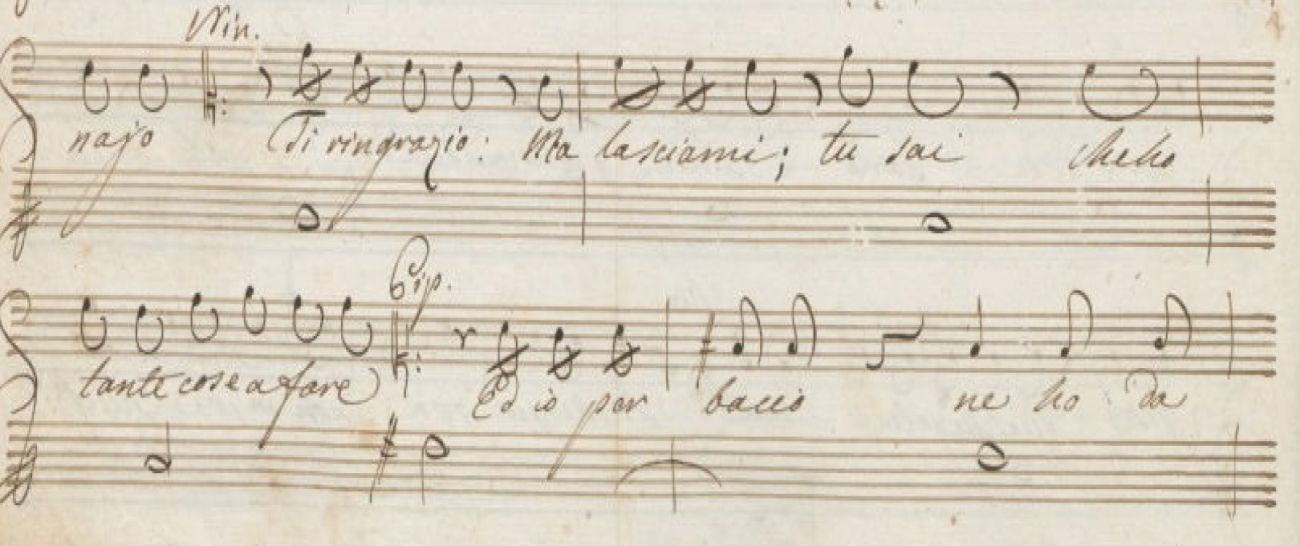 Nin.
najo Ti ringrazio: Ma lasciami; tu sai cheho
Pip.
tante cose a fare Ed io per bacco ne ho da